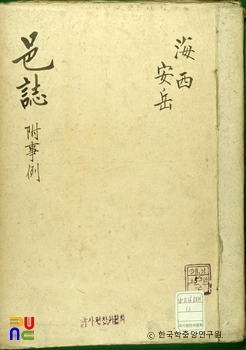 海西
安岳
邑誌
附事例
PUNC
© 한국학중앙연구원